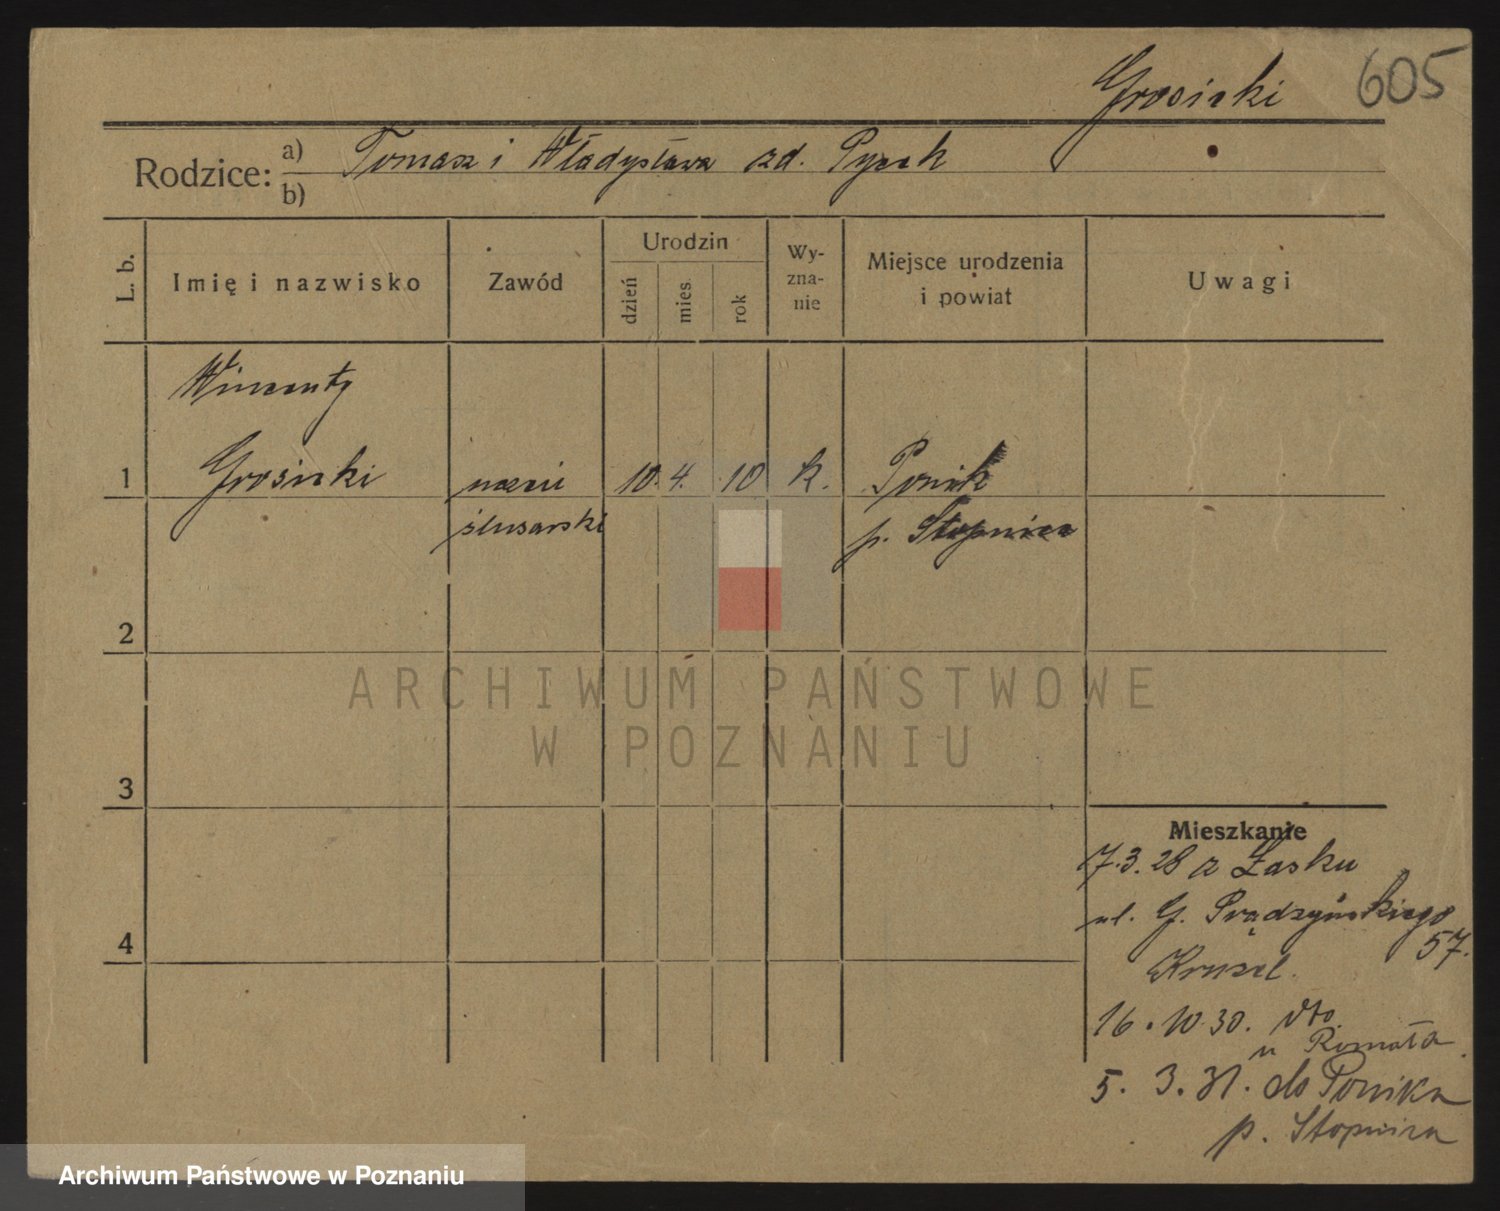 Grosicki 605
Rodzice: a) b) Tomasz i Władysława zd. Pyrek
L. b.
Imię i nazwisko
Zawód
Urodzin
dzień mies. rok
Wy-
zna-
nie
Miejsce urodzenia
i powiat
Uwagi
Wincenty
1 Grosicki uczeń 10. 4. 10 k. Ponik
ślusarski p. Stopnica
2
3
4
Mieszkanie
17.3.28 z Łasku
ul. G. Prądzyńskiego
57.
16.10.30. dto
u
5. 3. 31. do Ponika
p. Stopnica
ARCHIWUM PAŃSTWOWE
W POZNANIU
Archiwum Państwowe w Poznaniu